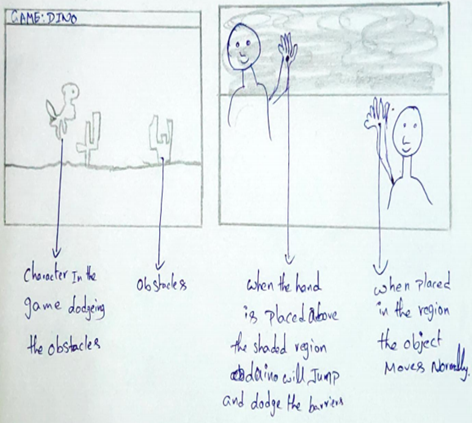 GAME:DINO
Character In the
game dodgeing
the obstacles
Obstacles
when the hand
is placed above
the shaded region
daino will Jump
and dodge the barriers
when placed
in the region
the object
Moves Normally.